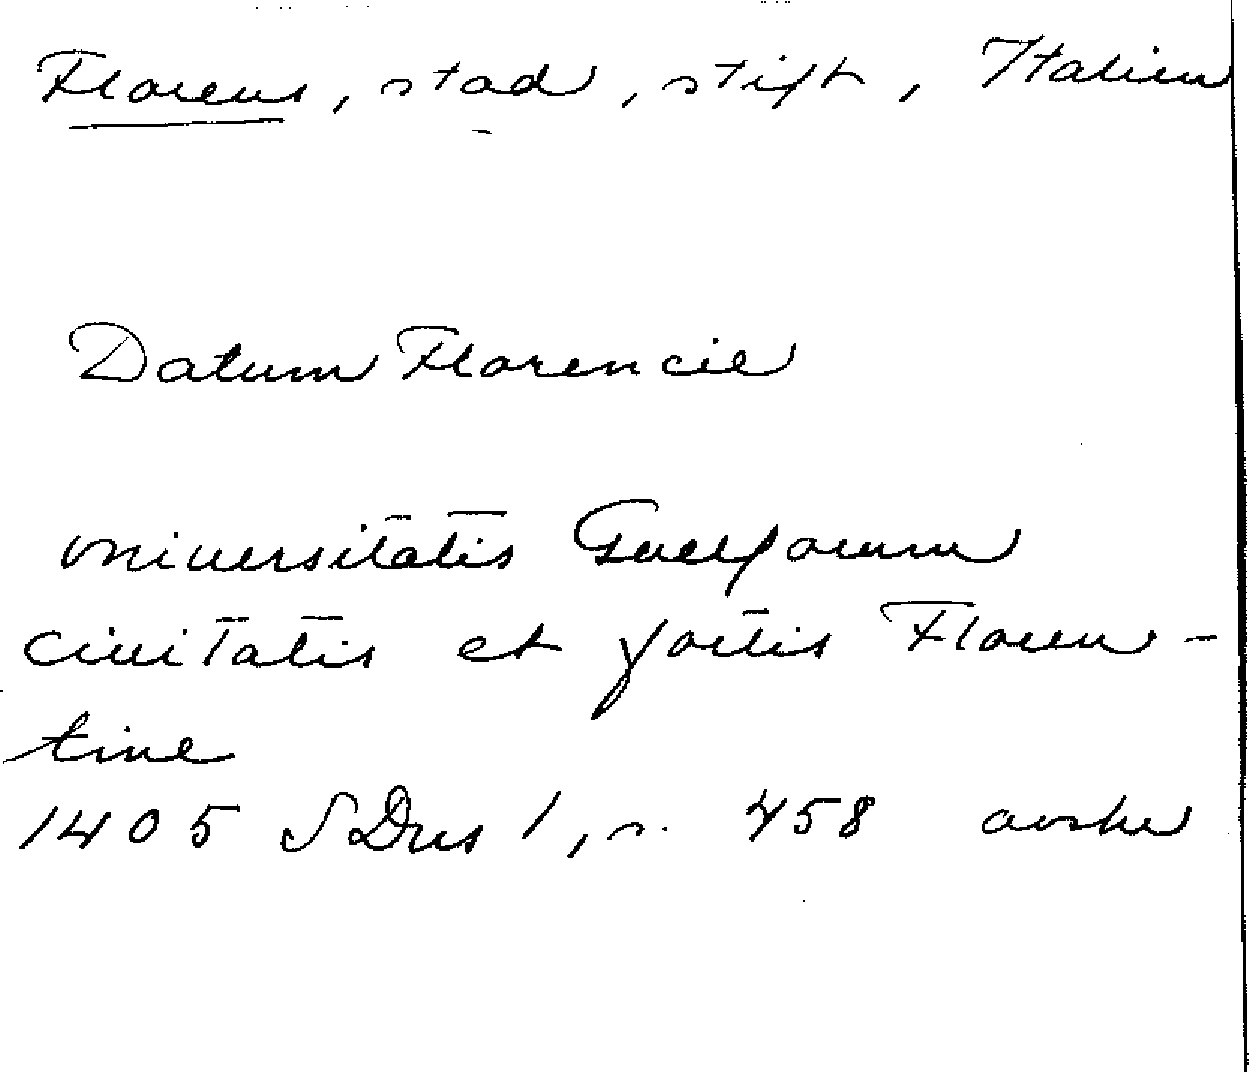 Florens, stad, stift, Italien
Datum Florencie
vniuersitatis Guelforum
ciuitatis et fortis Floren-
tine
1405 SDns 1, s. 458 avskr